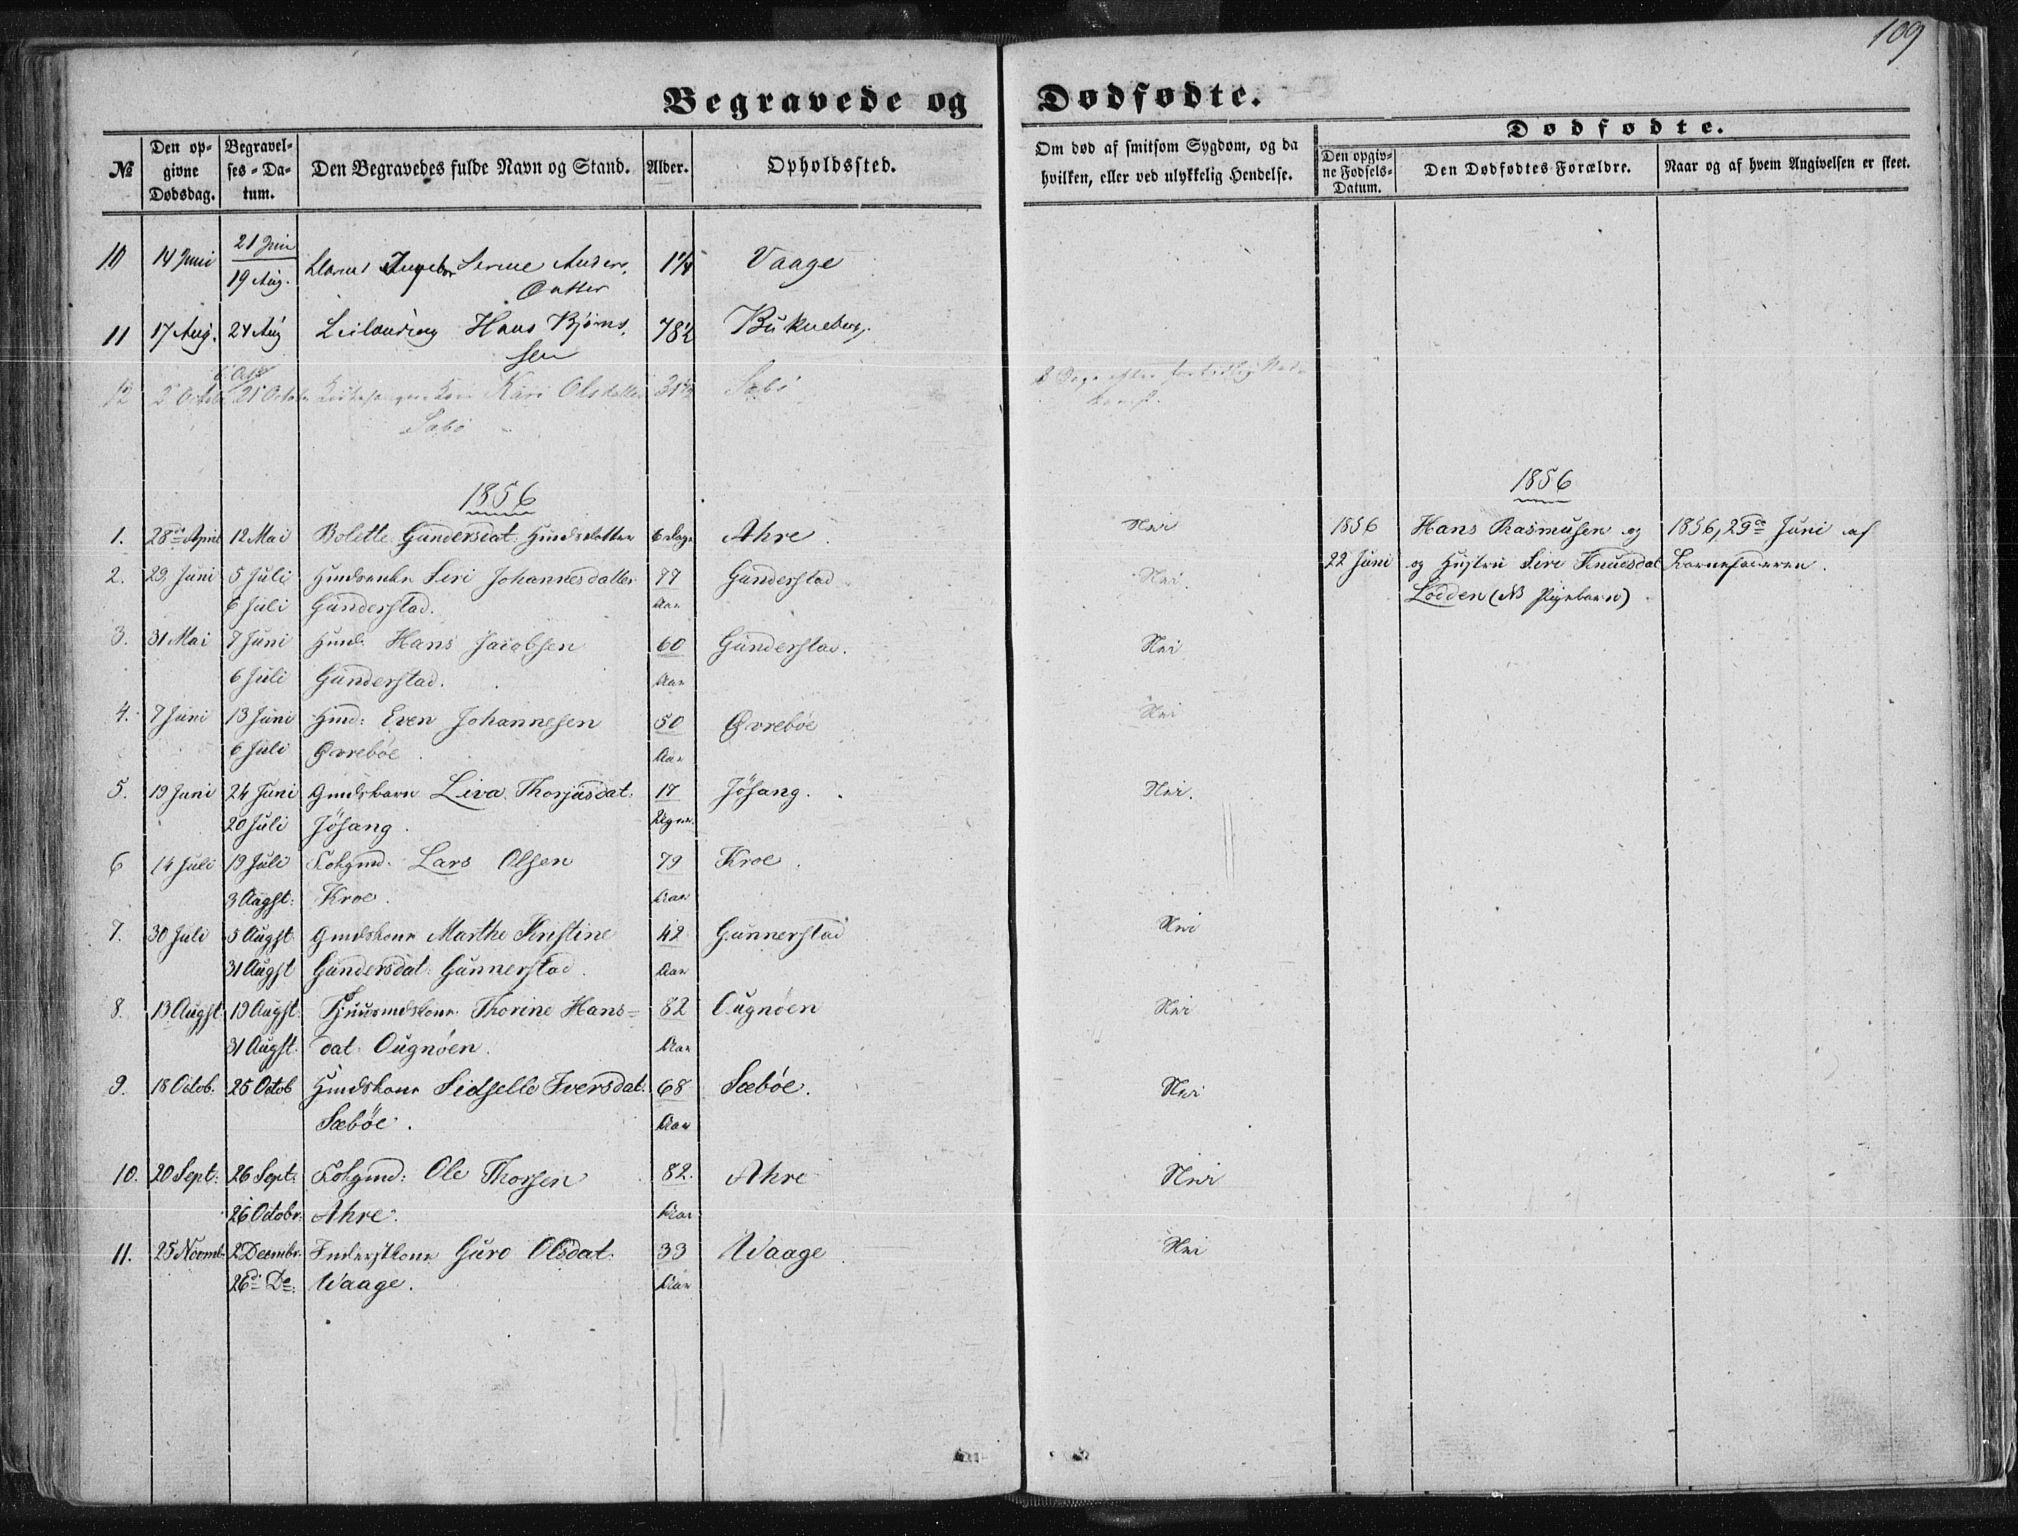 109
Begravede og Dødfødte.
№ Den op- givne Dødsdag. Begravel- ses-Da- tum. Den Begravedes fulde Navn og Stand. Alder. Opholdssted. Om død af smitsom Sygdom, og da hvilken, eller ved ulykkelig Hendelse. Dødfødte. Den opgiv- ne Fødsels- Datum. Den Dødfødtes Forældre. Naar og af hvem Angivelsen er skeet.
10 14 Juni 21 Juni Serine Anders 1¼ Vaage
19 Aug. Datter
11 17 Aug. 24 Aug Hans Bjørns 78½ Bukneberg.
sen
6 Oct
12 2 Octob 25 October Kari Olsdatter 31½ Sæbø
Sæbø
1856 1856
1. 28de April 12 Mai Bolette Gundersdat: 6 dage Ahre. Nei 1856 Hans Rasmusen og 1856, 29de Juni af
2. 29. Juni 5 Juli Siri Johannesdatter 77 Gunderstad Nei. 22 Juni og Hustru Siri Knuesdat Barnefaderen.
6 Juli Gunderstad. Aar Lødden (NB Pigebarn)
3. 31 Mai 7 Juni Hans Jacobsen 60 Gunderstad. Nei
6 Juli Gunderstad. Aar
4. 7 Juni 13 Juni Even Johannesen 50 Øvrebøe Nei
6 Juli Øvrebøe. Aar
5. 19 Juni 24 Juni Liva Thorjusdat: 17 Jøsang. Nei.
20 Juli Jøsang. Uger.
6 14 Juli 19 Juli Folgmd: Lars Olsen 79 Kroe.
3 Augst: Kroe. Aar
7. 30 Juli 5 Augst Gmdskone Marthe Kristine 42 Gunnerstad Nei
31 Augst Gundersdat: Gunnerstad. Aar
8. 13 Augst 19 Augst. Thorine Hans- 82 Ougnøen Nei
31 Augst. dat: Ougnøen. Aar
9. 18 Octob. 25 Octob Sidselle Iversdat: 68 Sæbøe. Nei
Sæbøe. Aar
10. 20 Sept: 26 Sept: Folgmd: Ole Thorsen 82. Ahre Nei
26 Octobr. Ahre. Aar
11. 25 Novmb. 2 Decmbr. Inderstkone Guro Olsdat: 33 Waage Nei
26de De: Waage. Aar